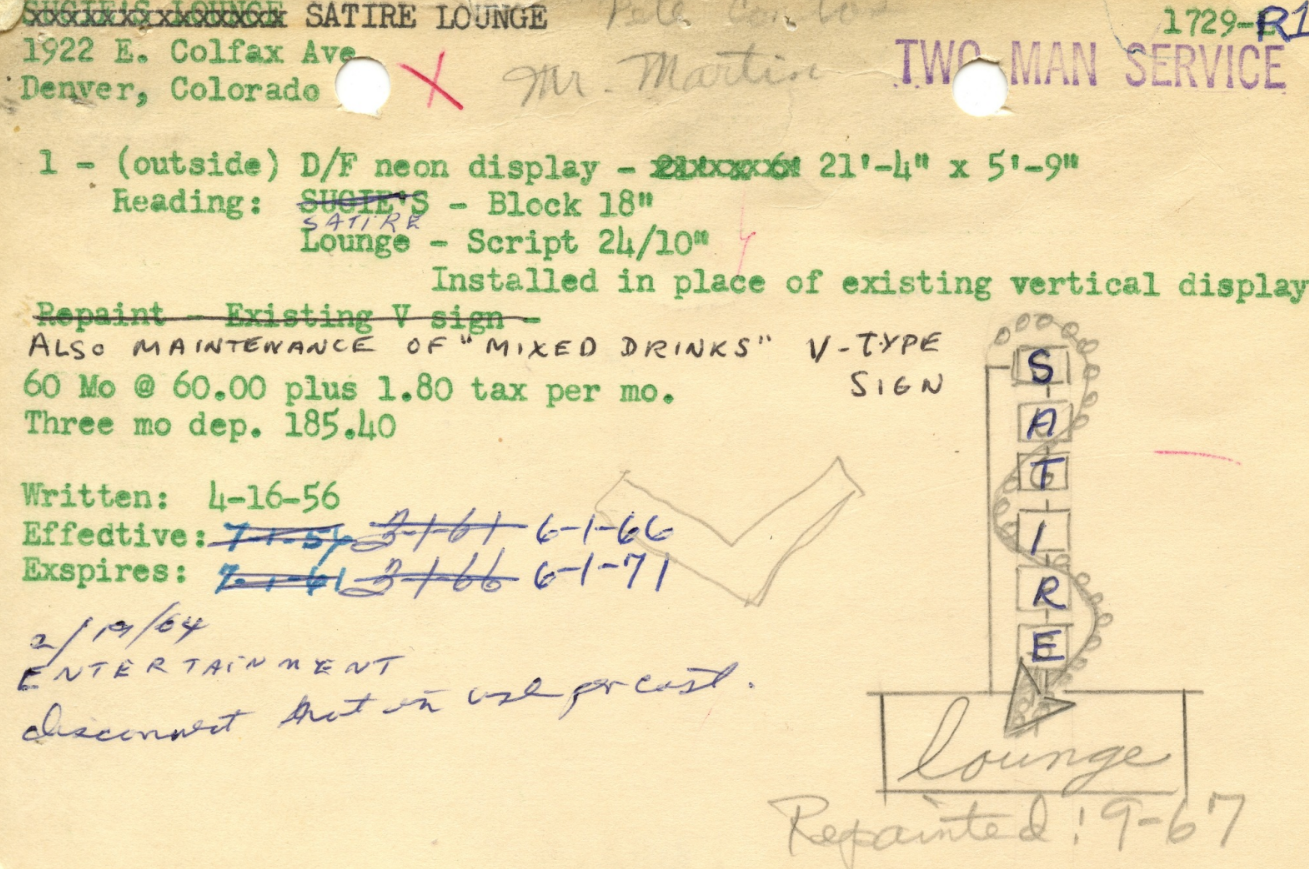 SUGIE'S LOUNGE SATIRE LOUNGE
Pete Contos
1729-R1
1922 E. Colfax Ave
Mr. Martin
TWO MAN SERVICE
Denver, Colorado
1 - (outside) D/F neon display - 21'-4" x 5'-9"
Reading: SUGIE'S - Block 18"
SATIRE
Lounge - Script 24/10"
Installed in place of existing vertical display
Repaint - Existing V sign -
ALSO MAINTENANCE OF "MIXED DRINKS" V-TYPE
SIGN
60 Mo @ 60.00 plus 1.80 tax per mo.
Three mo dep. 185.40
Written: 4-16-56
Effedtive: 7-1-56 3-1-61 6-1-66
Exspires: 7-1-61 3-1-66 6-1-71
2/19/64
ENTERTAINMENT
disconnect not in use per cust.
S
A
T
I
R
E
lounge
Repainted! 9-67